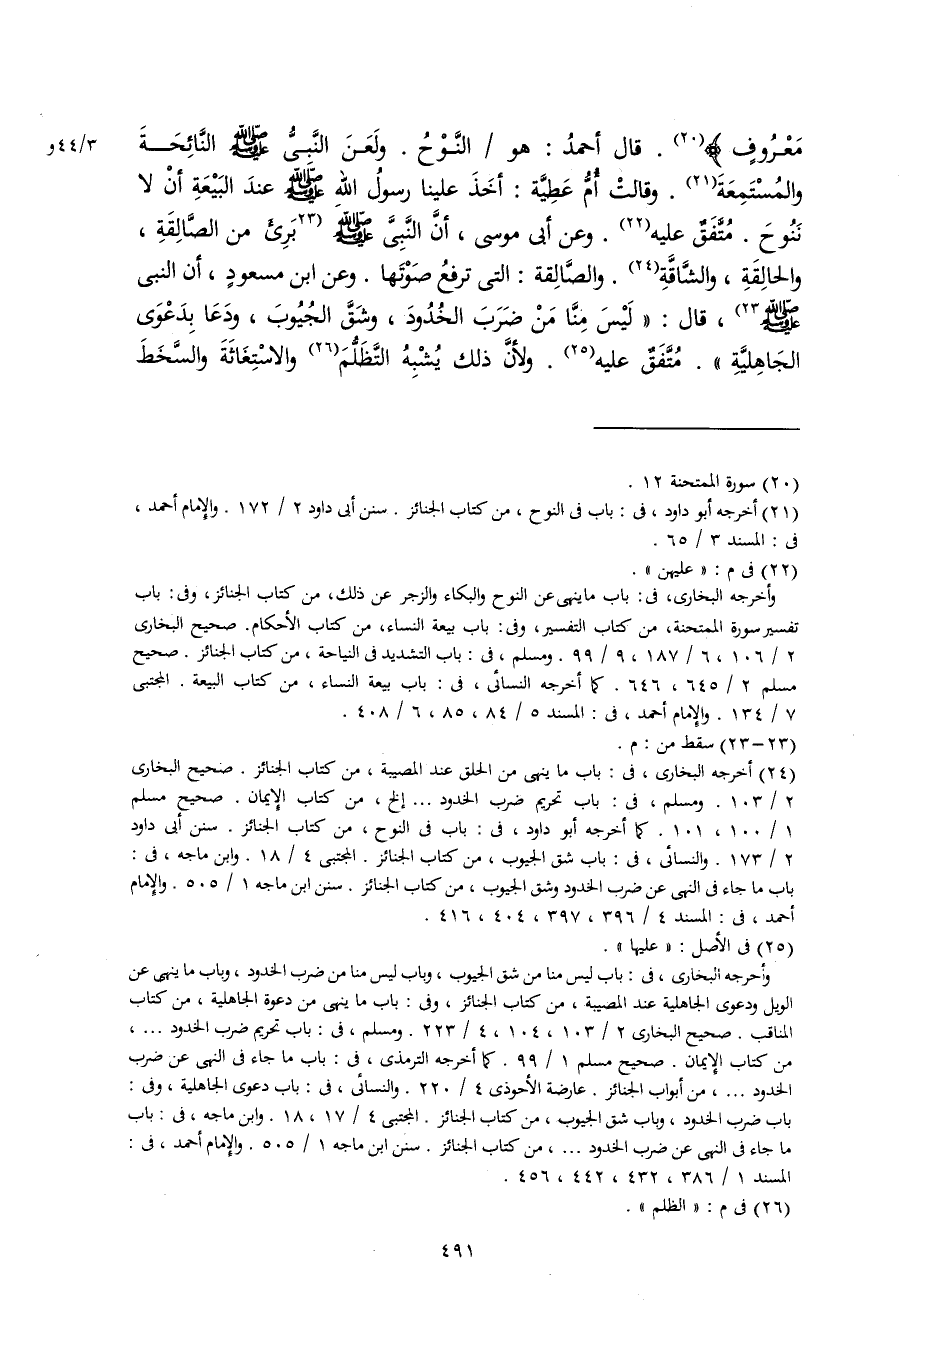 مَعْرُوفٍ ﴾(٢٠) . قال أحمدُ : هو / النَّوْحُ . ولَعَنَ النَّبِىُّ ﷺ النَّائِحَـــةَ ٤٤/٣و
والمُسْتَمِعَةَ(٢١) . وقالتْ أُمُّ عَطِيَّة : أخَذَ علينا رسولُ اللهِ ﷺ عندَ البَيْعَةِ أنْ لا
نَنُوحَ . مُتَّفَقٌ عليه(٢٢) . وعن أبى موسى ، أنَّ النَّبِىَّ ﷺ (٢٣بَرِئَ من الصَّالِقَةِ ،
والحالِقَةِ ، والشَّاقَّةِ(٢٤) . والصَّالِقة : التى ترفعُ صَوْتَها . وعن ابن مسعودٍ ، أن النبى
ﷺ٢٣) ، قال : « لَيْسَ مِنَّا مَنْ ضَرَبَ الخُدُودَ ، وشَقَّ الجُيُوبَ ، ودَعَا بِدَعْوَى
الجَاهِليَّةِ » . مُتَّفَقٌ عليه(٢٥) . ولأنَّ ذلك يُشْبِهُ التَّظَلُّمَ(٢٦) والاسْتِغَاثَةَ والسَّخَطَ
(٢٠) سورة الممتحنة ١٢ .
(٢١) أخرجه أبو داود ، فى : باب فى النوح ، من كتاب الجنائز . سنن أبى داود ٢ / ١٧٢ . والإمام أحمد ،
فى : المسند ٣ / ٦٥ .
(٢٢) فى م : « عليهن » .
وأخرجه البخارى، فى: باب ما ينهى عن النوح والبكاء والزجر عن ذلك، من كتاب الجنائز، وفى: باب
تفسير سورة الممتحنة، من كتاب التفسير، وفى: باب بيعة النساء، من كتاب الأحكام. صحيح البخارى
٢ / ١٠٦ ، ٦ / ١٨٧ ، ٩ / ٩٩ . ومسلم ، فى : باب التشديد فى النياحة ، من كتاب الجنائز . صحيح
مسلم ٢ / ٦٤٥ ، ٦٤٦ . كما أخرجه النسائى ، فى : باب بيعة النساء ، من كتاب البيعة . المجتبى
٧ / ١٣٤ . والإمام أحمد ، فى : المسند ٥ / ٨٤ ، ٨٥ ، ٦ / ٤٠٨ .
(٢٣-٢٣) سقط من : م .
(٢٤) أخرجه البخارى ، فى : باب ما ينهى من الحلق عند المصيبة ، من كتاب الجنائز . صحيح البخارى
٢ / ١٠٣ . ومسلم ، فى : باب تحريم ضرب الخدود ... إلخ ، من كتاب الإيمان . صحيح مسلم
١ / ١٠٠ ، ١٠١ . كما أخرجه أبو داود ، فى : باب فى النوح ، من كتاب الجنائز . سنن أبى داود
٢ / ١٧٣ . والنسائى ، فى : باب شق الجيوب ، من كتاب الجنائز . المجتبى ٤ / ١٨ . وابن ماجه ، فى :
باب ما جاء فى النهى عن ضرب الخدود وشق الجيوب ، من كتاب الجنائز . سنن ابن ماجه ١ / ٥٠٥ . والإمام
أحمد ، فى : المسند ٤ / ٣٩٦ ، ٣٩٧ ، ٤٠٤ ، ٤١٦ .
(٢٥) فى الأصل : « عليها » .
وأخرجه البخارى ، فى : باب ليس منا من شق الجيوب ، وباب ليس منا من ضرب الخدود ، وباب ما ينهى عن
الويل ودعوى الجاهلية عند المصيبة ، من كتاب الجنائز ، وفى : باب ما ينهى من دعوة الجاهلية ، من كتاب
المناقب . صحيح البخارى ٢ / ١٠٣ ، ١٠٤ ، ٤ / ٢٢٣ . ومسلم ، فى : باب تحريم ضرب الخدود ... ،
من كتاب الإيمان . صحيح مسلم ١ / ٩٩ . كما أخرجه الترمذى ، فى : باب ما جاء فى النهى عن ضرب
الخدود ... ، من أبواب الجنائز . عارضة الأحوذى ٤ / ٢٢٠ . والنسائى ، فى : باب دعوى الجاهلية ، وفى :
باب ضرب الخدود ، وباب شق الجيوب ، من كتاب الجنائز . المجتبى ٤ / ١٧ ، ١٨ . وابن ماجه ، فى : باب
ما جاء فى النهى عن ضرب الخدود ... ، من كتاب الجنائز . سنن ابن ماجه ١ / ٥٠٥ . والإمام أحمد ، فى :
المسند ١ / ٣٨٦ ، ٤٣٢ ، ٤٤٢ ، ٤٥٦ .
(٢٦) فى م : « الظلم » .
٤٩١